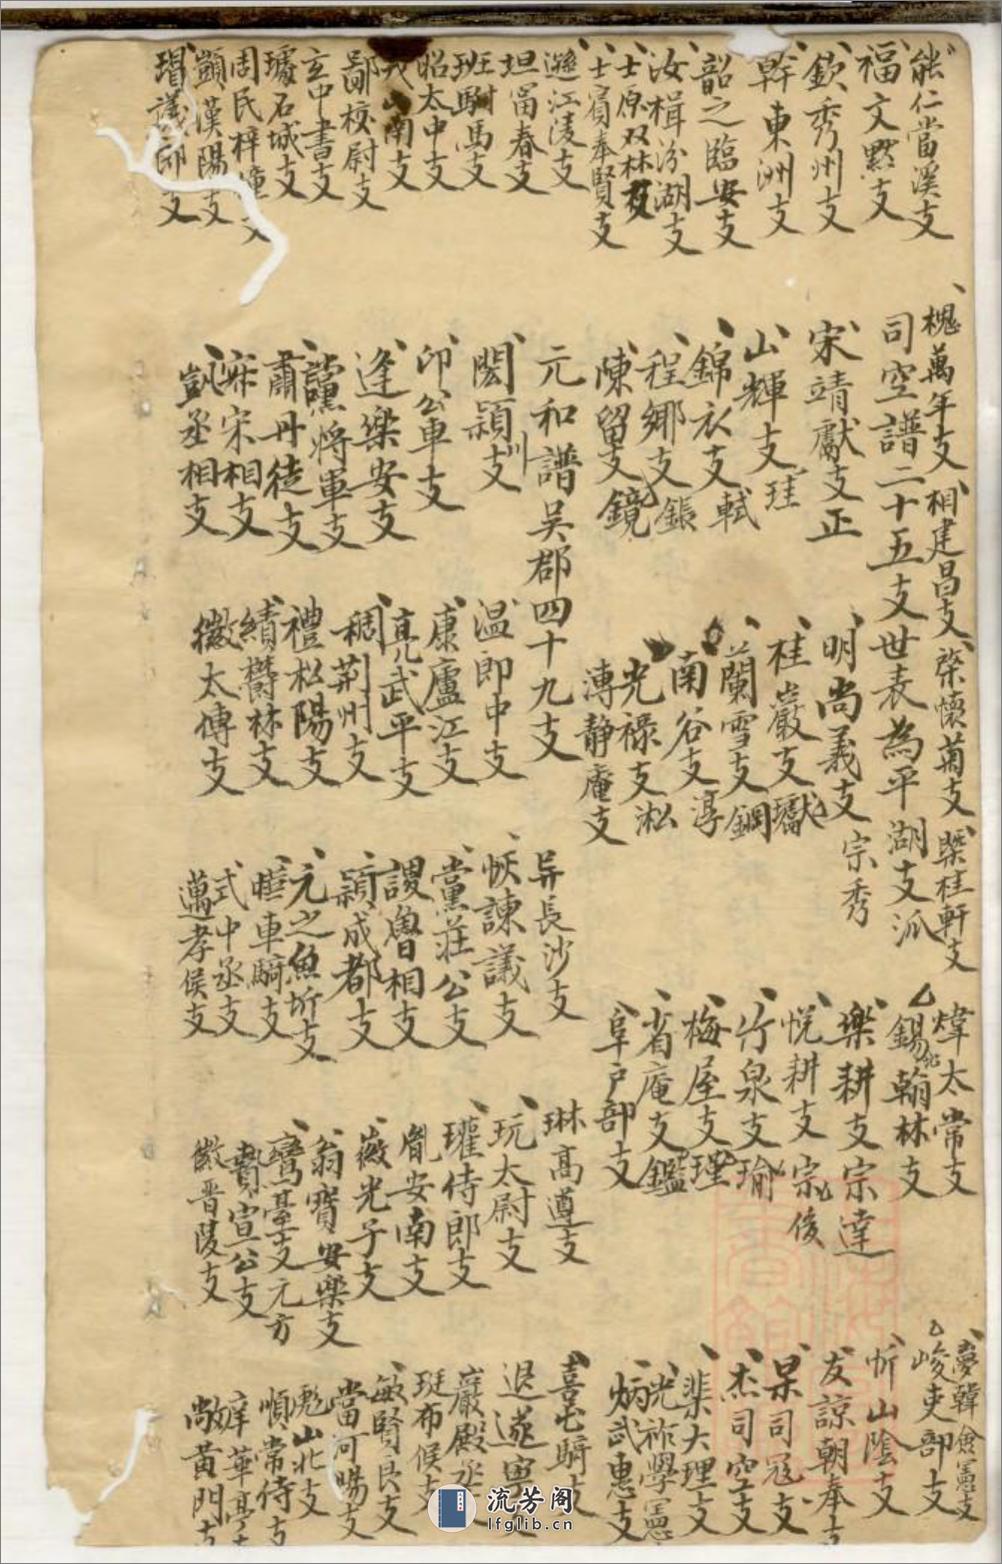 能仁當溪支
福文黙支
欽秀州支
幹東洲支
韶之臨安支
汝楫汾湖支
士原双林支
士賓奉賢支
遜江陵支
坦富春支
班駙馬支
昭太中支
山南支
鄙校尉支
玄中書支
璩石城支
周民梓潼支
顗漢陽支
瑁議郎支
槐萬年支
相建昌支
棨懷菊支
槩桂軒支
司空譜二十五支世表為平湖支派
宋靖獻支正
山輝支珪
錦衣支軾
程鄉支鋹
陳留支鏡
明尚義支宗秀
桂巖支瓛
蘭雪支鋼
南谷支淳
光祿支淞
溥靜庵支
煒太常支
錫翰林支
樂耕支宗達
悅耕支宗俊
竹泉支瑜
梅屋支瑾
省庵支鑑
阜戶部支
夢韓僉憲支
峻吏部支
忻山陰支
友諒朝奉支
杲司冦支
杰司空支
棐大理支
光祚學憲
炳武惠支
元和譜吳郡四十九支
閎潁川支
印公車支
逢樂安支
讜將軍支
肅丹徒支
宋相支
凱丞相支
温郎中支
康廬江支
真武平支
稠荆州支
禮松陽支
績鬱林支
徽太傅支
异長沙支
悏諫議支
黨莊公支
謖魯相支
潁成都支
元之魚圻支
曄車騎支
式中丞支
邁孝侯支
琳高遵支
玩太尉支
瓘侍郎支
胤安南支
薇光子支
翁寶安樂支
鸞臺支元方
贄宣公支
徽晋陵支
喜屯騎支
退遯叟支
巖殿丞支
珽布候支
敏賢良支
當河暘支
彪山北支
順常侍支
庠華亭支
敞黃門支
流芳阁
lfglib.cn